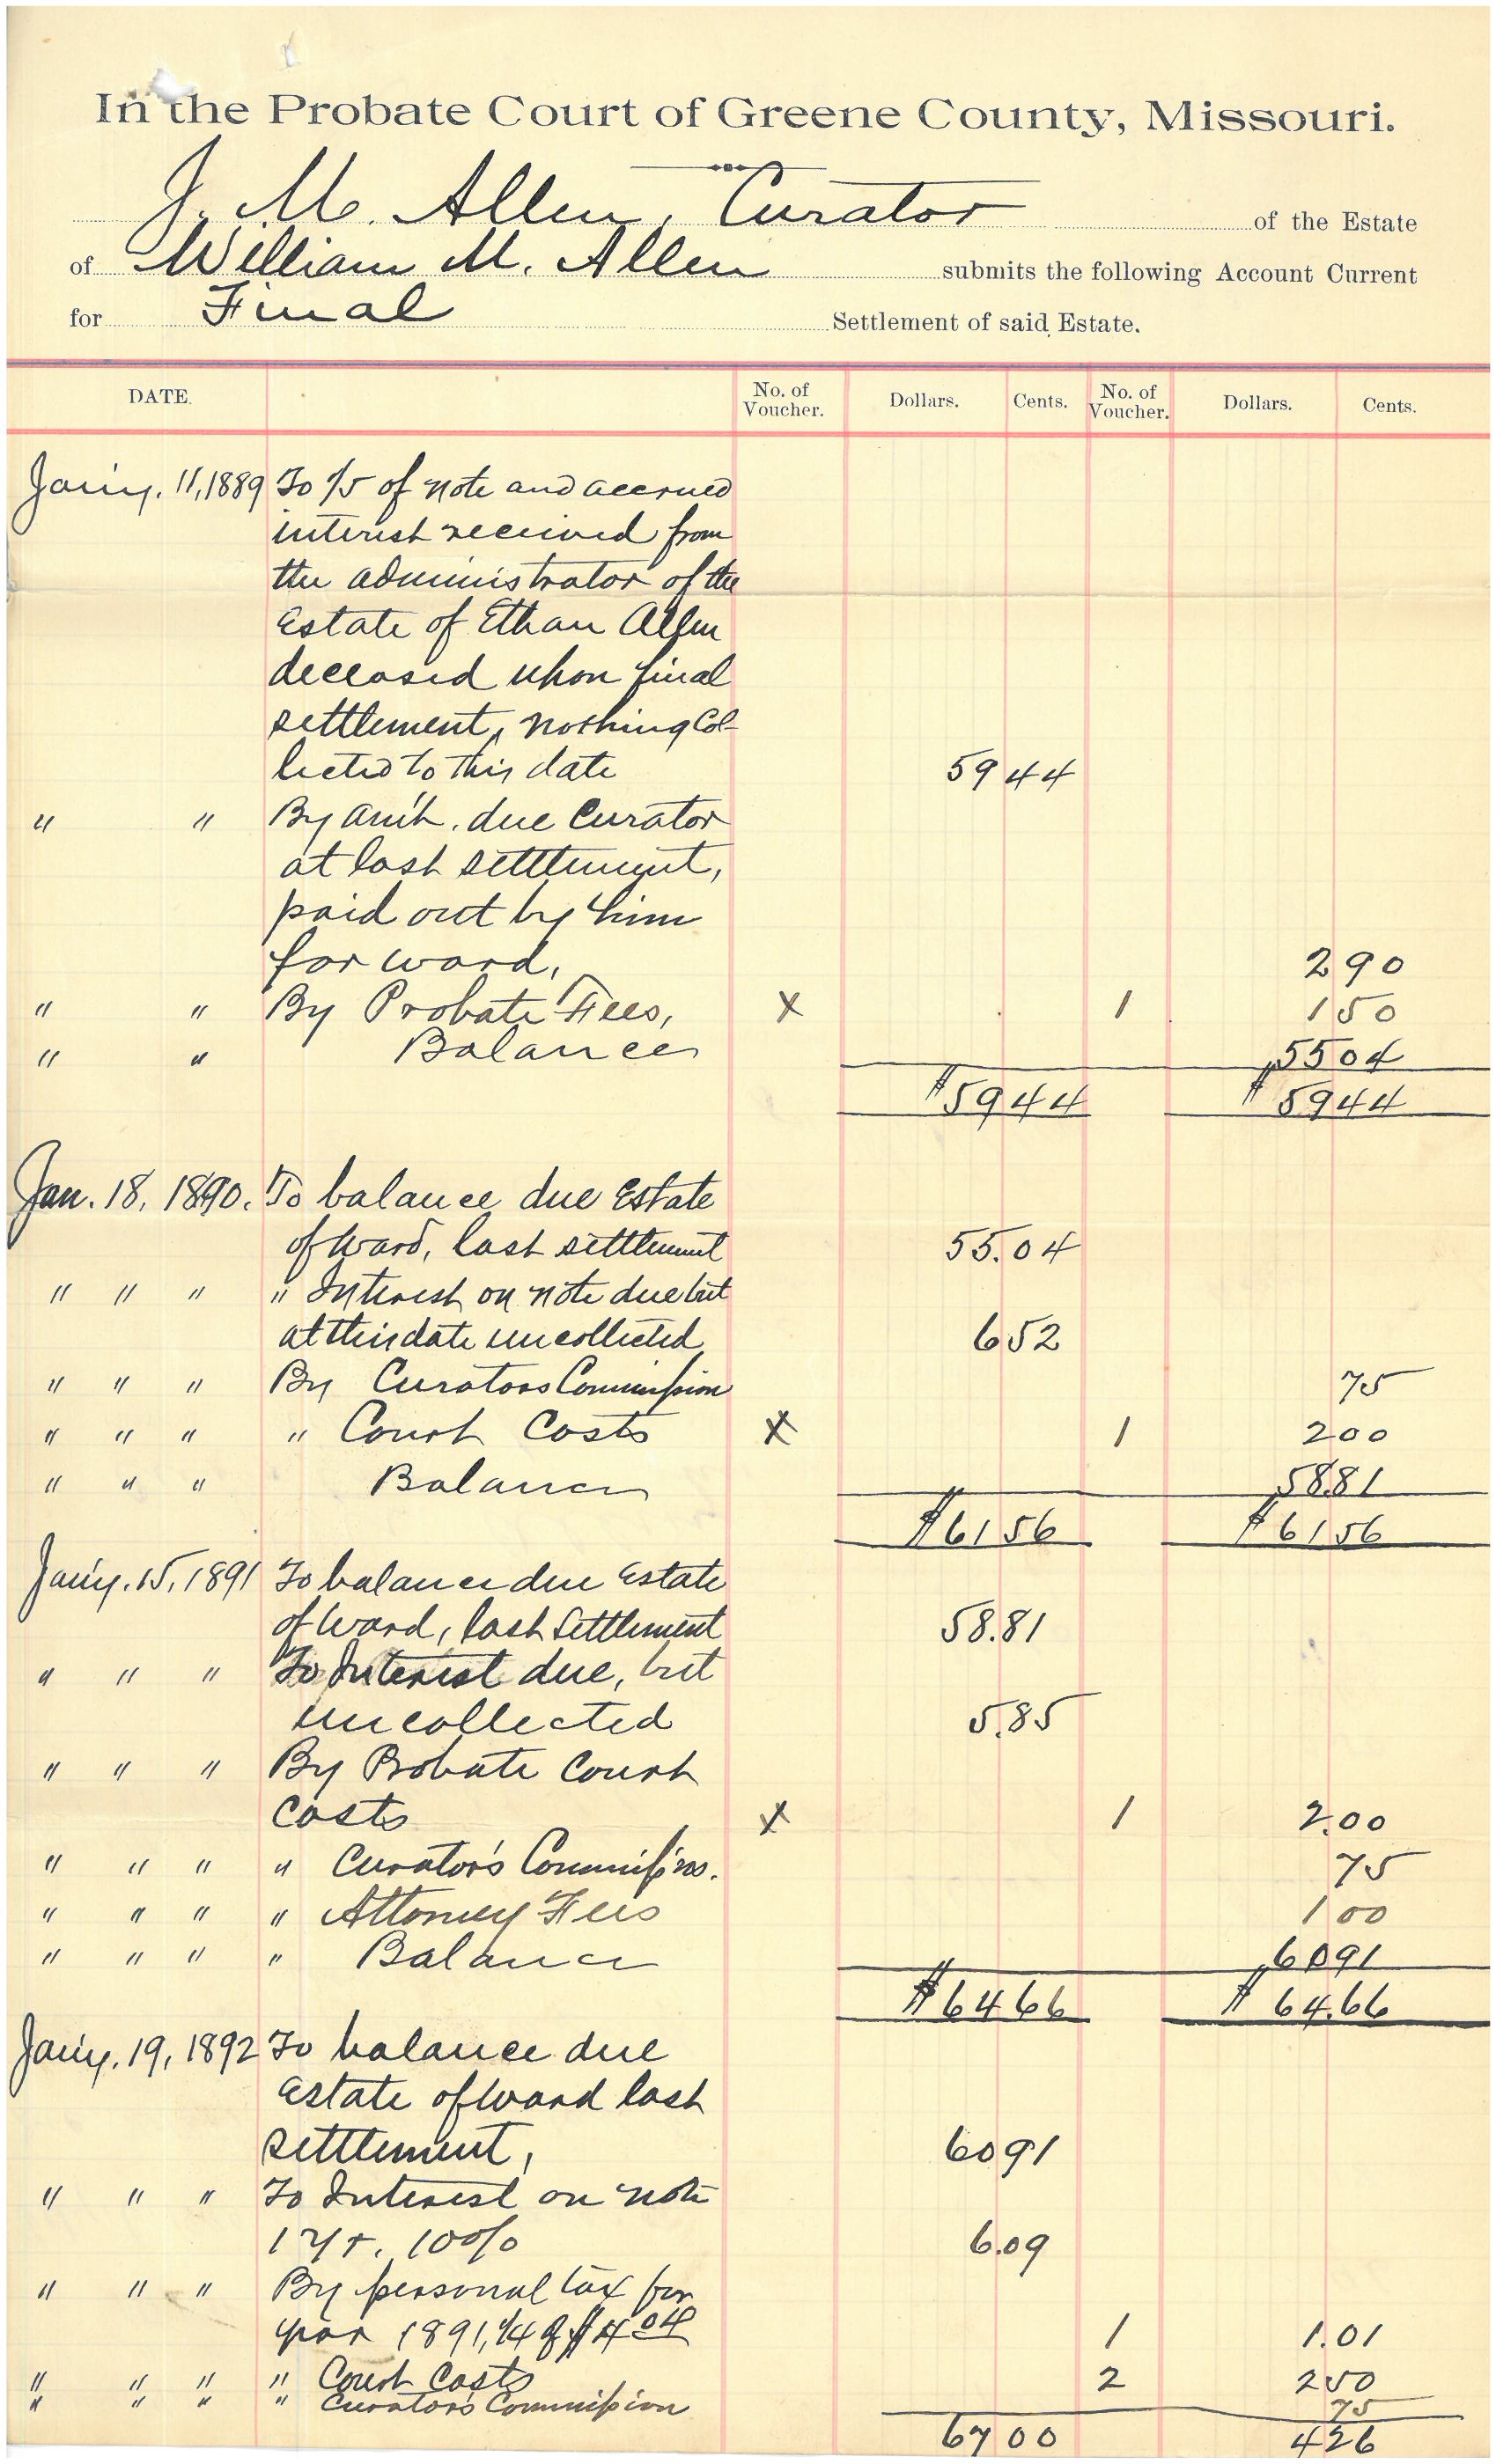 In the Probate Court of Greene County, Missouri.
J. M. Allen, Curator of the Estate
of William M. Allen submits the following Account Current
for Final Settlement of said Estate.
DATE. No. of Voucher. Dollars. Cents. No. of Voucher. Dollars. Cents.
Jan'y. 11, 1889 To 1/5 of note and accrued
interest received from
the administrator of the
Estate of Ethan Allen
deceased upon final
settlement, nothing col-
lected to this date 59 44
" " By am't. due Curator
at last settlement,
paid out by him
for ward, 2 90
" " By Probate Fees, X 1 1 50
" " Balance 55 04
$59 44 $59 44
Jan. 18, 1890. To balance due Estate
of Ward, last settlement 55.04
" " " " Interest on note due but
at this date uncollected 6 52
" " " By Curators Commission 75
" " " " Court Costs X 1 2 00
" " " Balance 58.81
$61 56 $61 56
Jan'y. 15, 1891 To balance due Estate
of Ward, last Settlement 58.81
" " " To Interest due, but
uncollected 5.85
" " " By Probate Court
Costs X 1 2.00
" " " " Curator's Commission. 75
" " " " Attorney Fees 1 00
" " " " Balance 60 91
$64 66 $64.66
Jan'y. 19, 1892 To balance due
Estate of Ward last
settlement, 60 91
" " " To Interest on note
1 yr. 10% 6.09
" " " By personal tax for
year 1891, 1/4 of $4 04 1 1.01
" " " " Court Costs 2 2 50
" " " " Curator's Commission 75
67 00 4 26